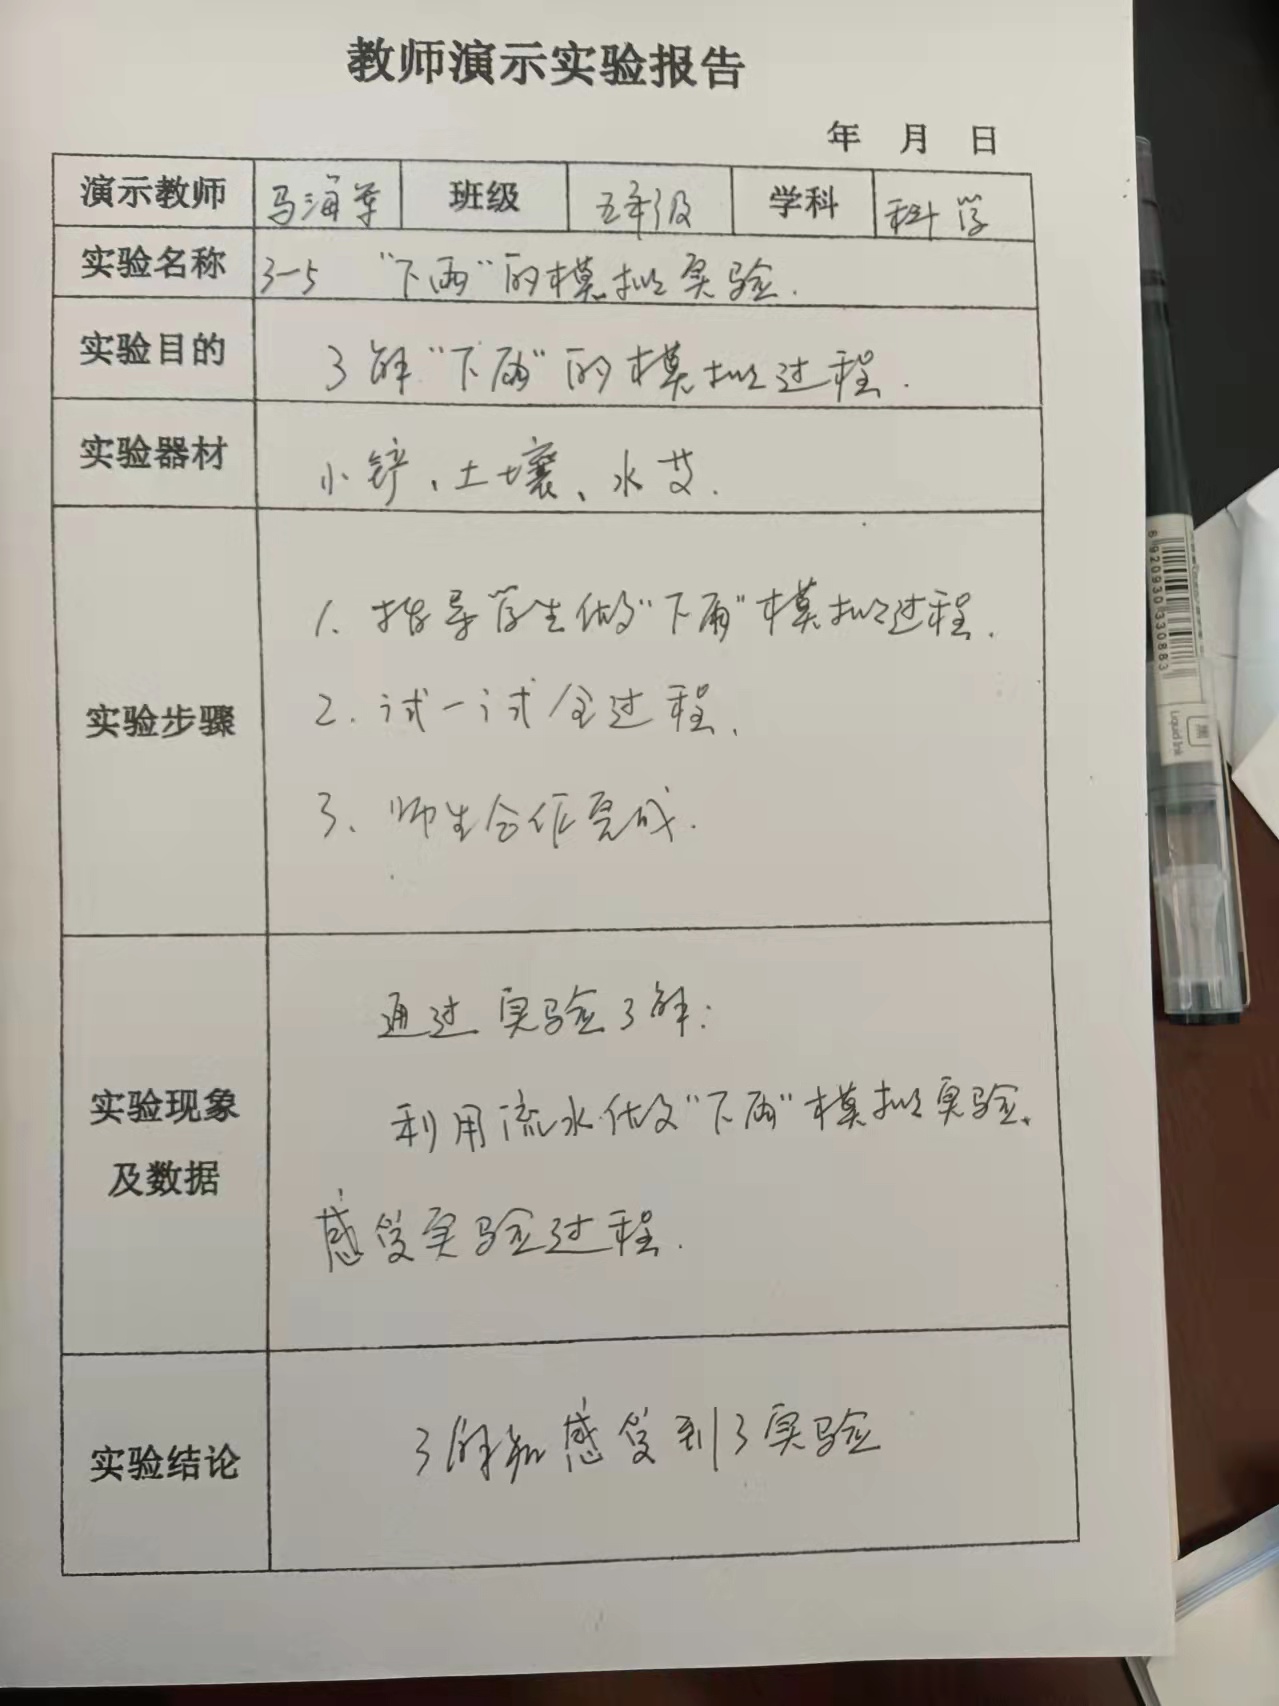 教师演示实验报告
年 月 日
演示教师 马海军 班级 五年级 学科 科学
实验名称 3-5 "下雨"的模拟实验.
实验目的 了解"下雨"的模拟过程.
实验器材 小铲、土壤、水
实验步骤
1. 指导学生做"下雨"模拟过程.
2. 试一试全过程.
3、师生合作完成.
实验现象
及数据
通过实验了解:
利用流水做"下雨"模拟实验、
感受实验过程.
实验结论 了解和感受到了实验
6920930330883
Liquid Ink
黑